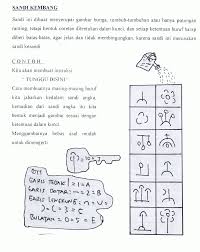 SANDI KEMBANG
Sandi ini dibuat menyerupai gambar bunga, tumbuh-tumbuhan atau hanya potongan
ranting, tetapi bentuk coretan disesuaikan dengan kunci, dan setiap ketemuan huruf harap
diberi batas-batas, agar jelas dan tidak membingungkan, karena sandi ini merupakan
sandi
CONTOH
Kita akan membuat instruksi
" TUNGGU DISINI "
Cara membuatnya masing-masing huruf
kita jabarkan kedalam sandi angka,
kemudian dari sandi angka itu kita
bentuk menjadi gambar sesuai dengan
ketentuan dalam kunci.
Menggambarnya bebas asal mudah
untuk dimengerti
GARIS TEGAK | = 1 = A
GARIS DATAR — = 2 = B
GARIS LENGKUNG = n = U =
) = ( = 3 = C
BULATAN = O = 5 = E